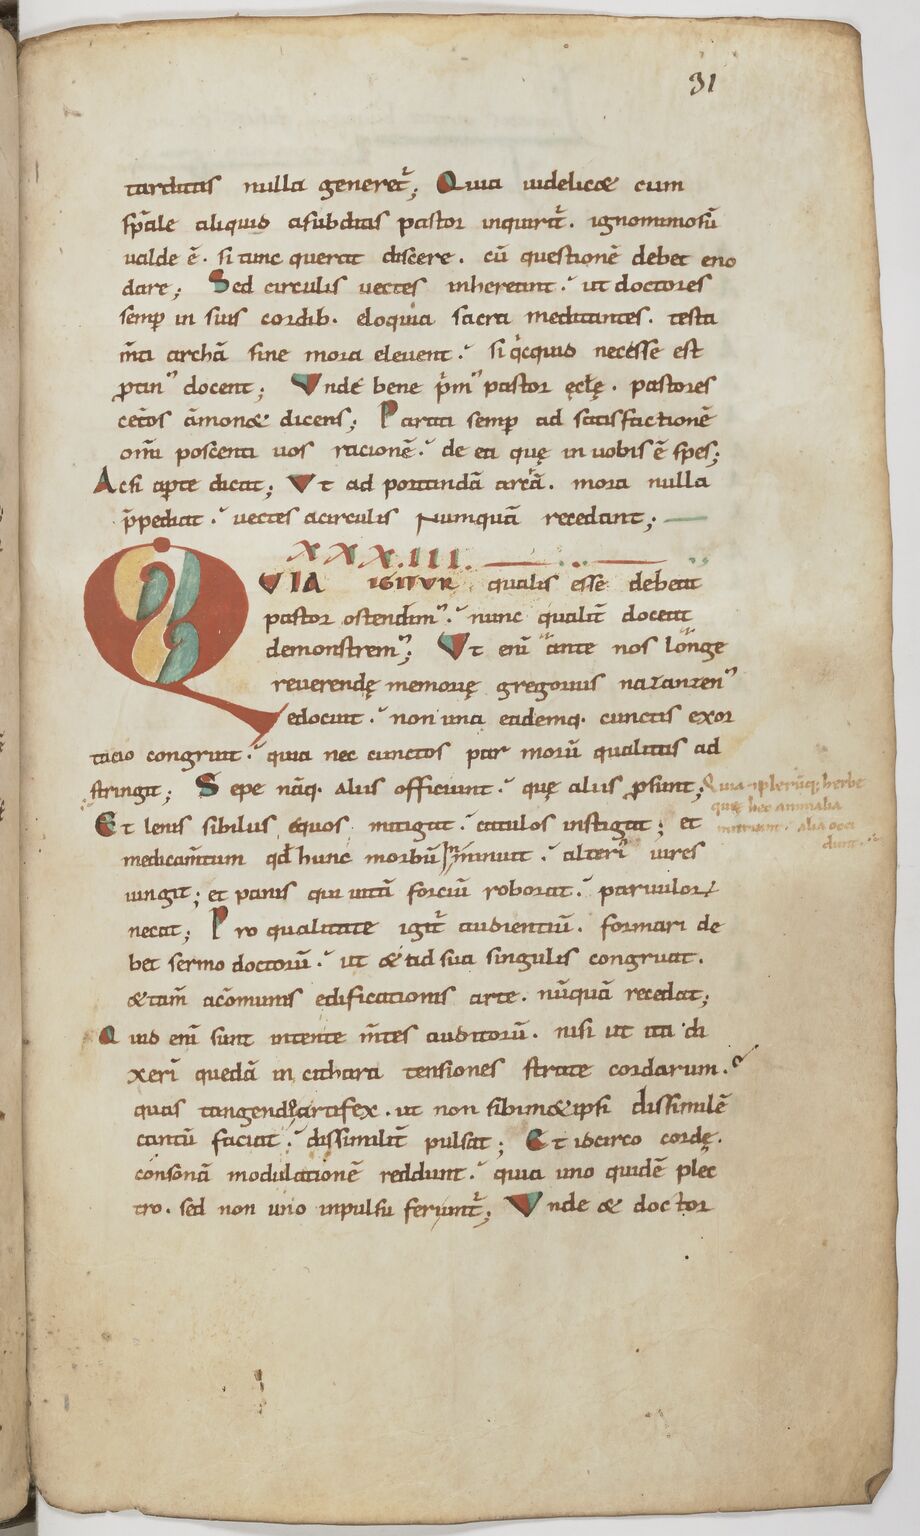 31
tarditas nulla generet᷑; Quia uidelicæ cum
sp̄ale aliquid asubditis pastor inquirit᷑. ignominiosū
ualde ē. si tunc querat discere. cū questionē debet eno
dare; Sed circulis uectes inhereant. ut doctores
semp̄ in suis cordib. eloquia sacra meditantes. testa
m̄ti archā sine mora eleuent. si qͥcquid necesse est
ꝓtinꝰ docent; Vnde bene pͥmꝰ pastor ęcłę. pastores
cet̄os āmonæ dicens; Parati semp̄ ad satisfactionē
om̄i poscenti uos racionē. de ea quę in uobis ē spes;
Acsi aꝑte dicat; Vt ad portandā arcā. mora nulla
p̄pediat. uectes acirculis numquā recedant;
XXXIII.
QVIA IGITVR qualis esse debeat
pastor ostendimꝰ. nunc qualit̄ doceat
demonstremꝰ; Vt eni̅ ante nos longe
reuerendę memorię gregorius nazanzenꝰ
edocuit. non una eademq. cunctis exor
tacio congruit. quia nec cunctos par morū qualitas ad
stringit; Sepe nāq. aliis officiunt. quę aliis ꝓsunt;
Quia ⁊ plerūq; herbe
quę hec animalia
nutriunt. alia occi
dunt.
Et lenis sibilus equos mitigat. catulos instigat; et
medicam̄tum qđ hunc morbū inminuit. alteri uires
iungit; et panis qui uitā forciū roborat. paruuloꝝ
necat; Pro qualitate igit᷑ audientiū. formari de
bet sermo doctorū. ut æ ad sua singulis congruat.
ætam̄ acōmunis edificationis arte. nūquā recedat;
Quid eni̅ sunt intente m̄tes auditorū. nisi ut ita di
xeri̅ quedā in cithara tensiones strate cordarum.
quas tangendo artifex. ut non sibimæipsi dissimilē
cantū faciat. dissimilit̄ pulsat; Et idcirco cordę.
consonā modulationē reddunt. quia uno quidē plec
tro. sed non uno inpulsu feriunt᷑; Vnde æ doctor